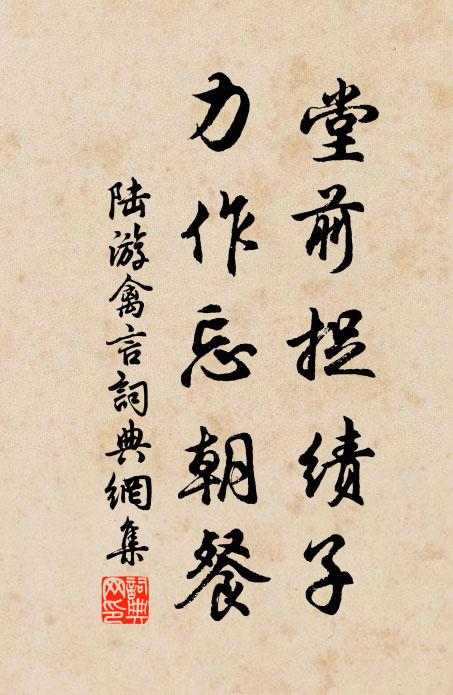 堂前捉绩子
力作忘朝餐
陆游禽言詞典網集
詞典网印